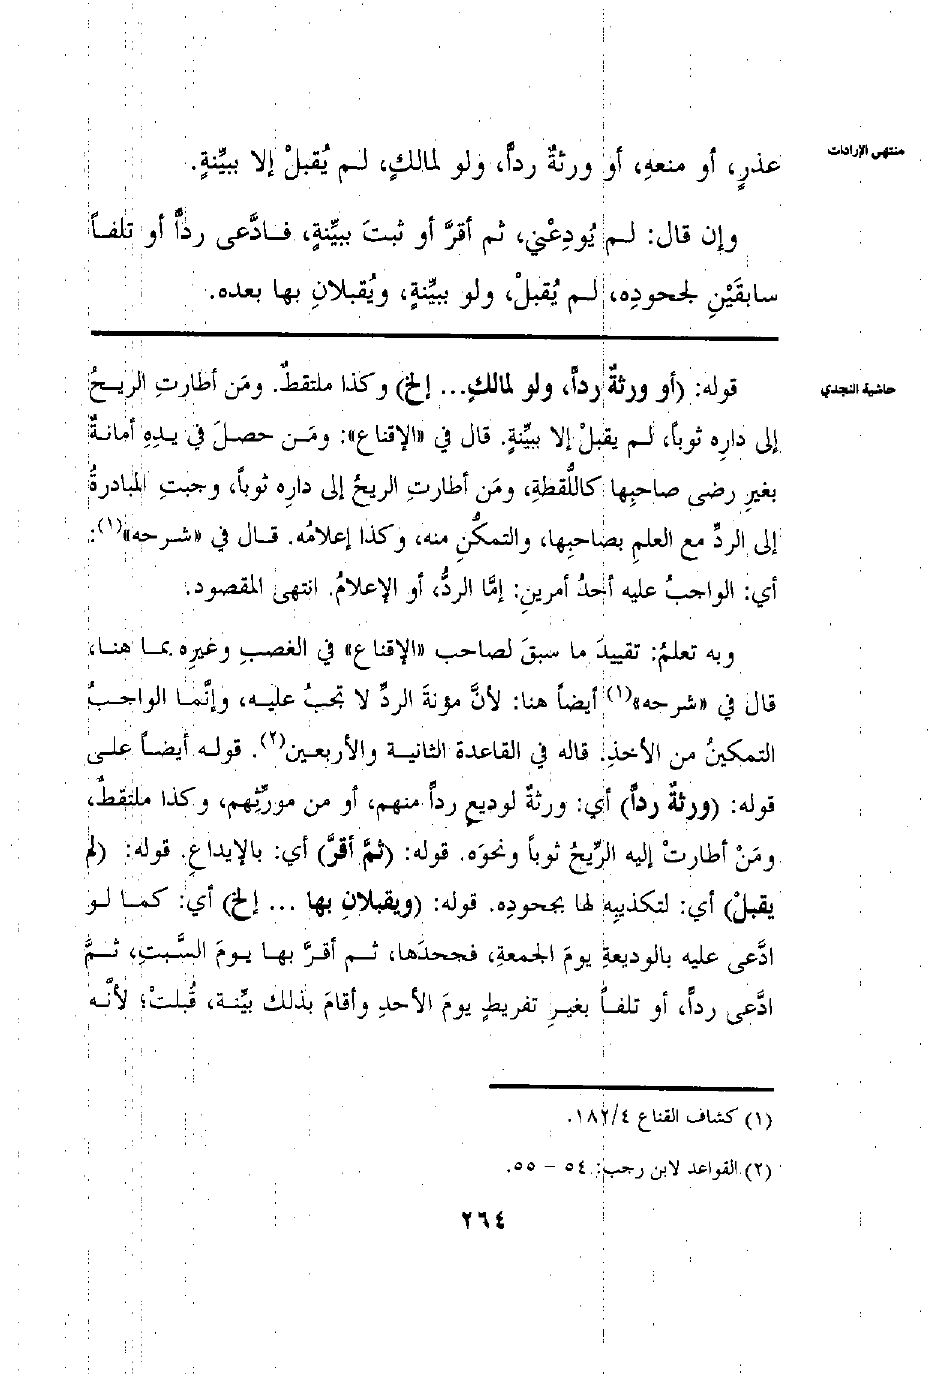 منتهى الإرادات
عذرٍ، أو منعهِ، أو ورثةٌ رداً، ولو لمالكٍ، لم يُقبلْ إلا ببيِّنةٍ.
وإن قال: لم يُودِعْني، ثم أقرَّ أو ثبتَ ببيِّنةٍ، فادَّعى ردًّا أو تلفاً
سابقَيْنِ لجحودِه، لم يُقبلْ، ولو ببيِّنةٍ، ويُقبلانِ بها بعده.
حاشية النجدي
قوله: (أو ورثةٌ رداً، ولو لمالكٍ... إلخ) وكذا ملتقطٌ. ومَن أطارتِ الريحُ
إلى دارِه ثوباً، لم يقبلْ إلا ببيِّنةٍ. قال في «الإقناع»: ومَن حصلَ في يدِهِ أمانةٌ
بغيرِ رضى صاحبِها كاللُّقطةِ، ومَن أطارتِ الريحُ إلى دارِه ثوباً، وجبتِ المبادرةُ
إلى الردِّ مع العلمِ بصاحبِها، والتمكُّنِ منه، وكذا إعلامُه. قال في «شرحه»(١):
أي: الواجبُ عليه أحدُ أمرينِ: إمَّا الردُّ، أو الإعلامُ. انتهى المقصود.
وبه تعلمُ: تقييدَ ما سبقَ لصاحب «الإقناع» في الغصبِ وغيرِه بما هنا،
قال في «شرحه»(١) أيضاً هنا: لأنَّ مؤنةَ الردِّ لا تجبُ عليه، وإنَّما الواجبُ
التمكينُ من الأخذِ. قاله في القاعدة الثانية والأربعين(٢). قوله أيضاً على
قوله: (ورثةٌ رداً) أي: ورثةٌ لوديعٍ رداً منهم، أو من مورِّثِهم، وكذا ملتقطٌ،
ومَنْ أطارتْ إليه الرِّيحُ ثوباً ونحوَه. قوله: (ثمَّ أقرَّ) أي: بالإيداعِ. قوله: (لم
يقبلْ) أي: لتكذيبِه لها بجحودِه. قوله: (ويقبلانِ بها ... إلخ) أي: كما لو
ادَّعى عليه بالوديعةِ يومَ الجمعةِ، فجحدَها، ثم أقرَّ بها يومَ السَّبتِ، ثمَّ
ادَّعى رداً، أو تلفاً بغيرِ تفريطٍ يومَ الأحدِ وأقامَ بذلك بيِّنة، قُبلتْ؛ لأنَّه
(١) كشاف القناع ١٨٢/٤.
(٢) القواعد لابن رجب: ٥٤ – ٥٥.
٢٦٤